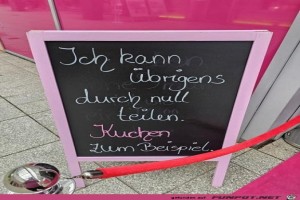 Ich kann
übrigens
durch null
teilen.
Kuchen
zum Beispiel.
FUNPOT.NET